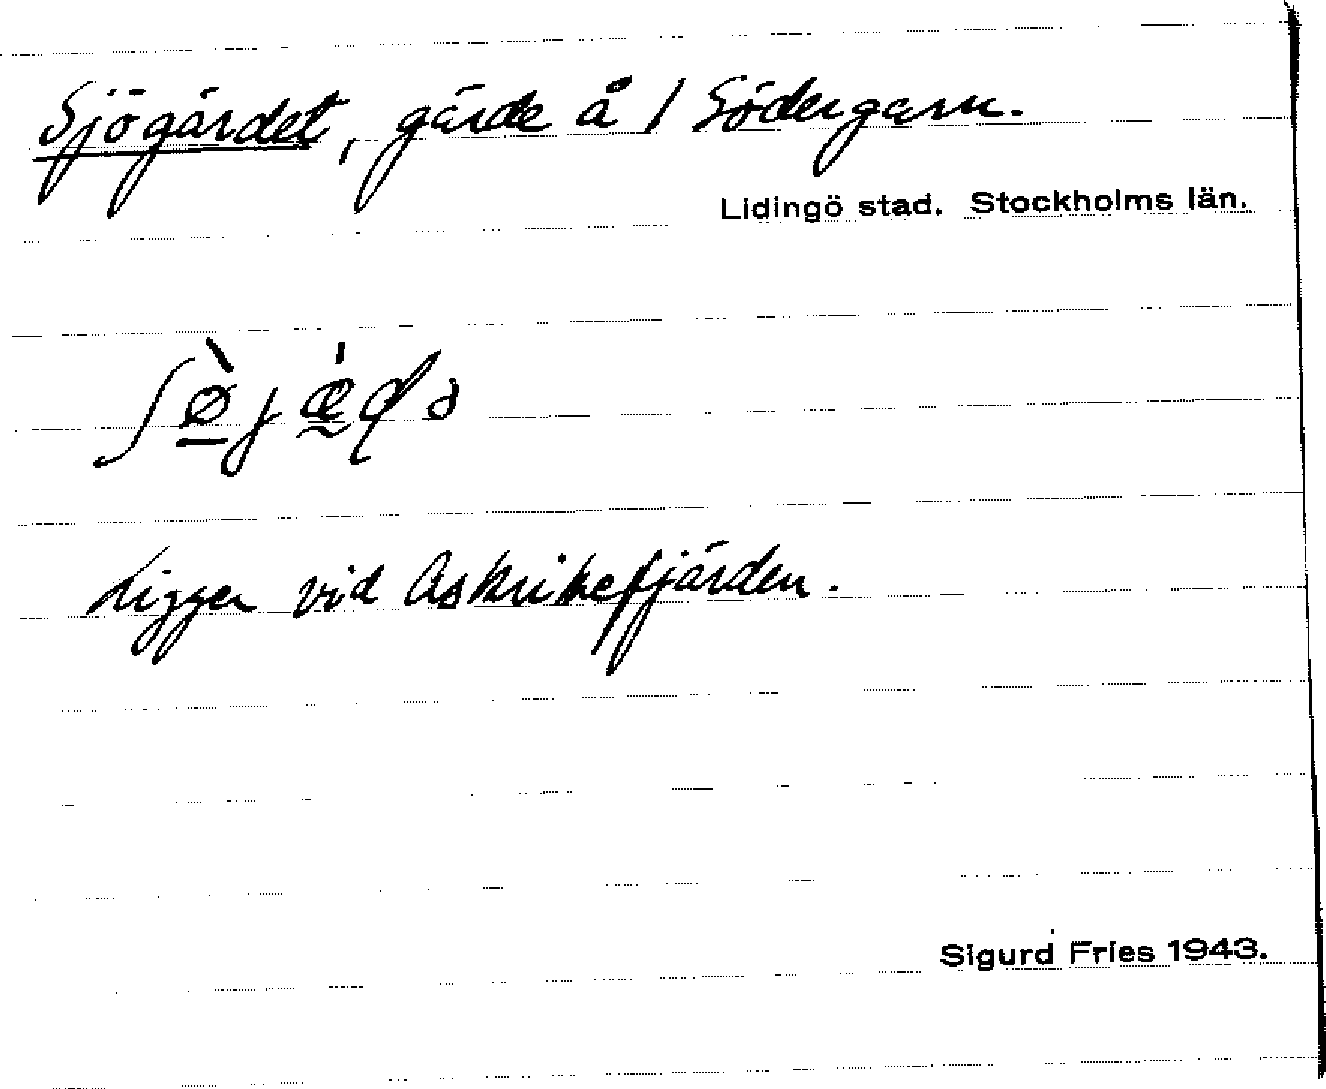 Sjögärdet, gärde å 1 Södergarn.
Lidingö stad. Stockholms län.
Ligger vid Askrikefjärden.
Sigurd Fries 1943.